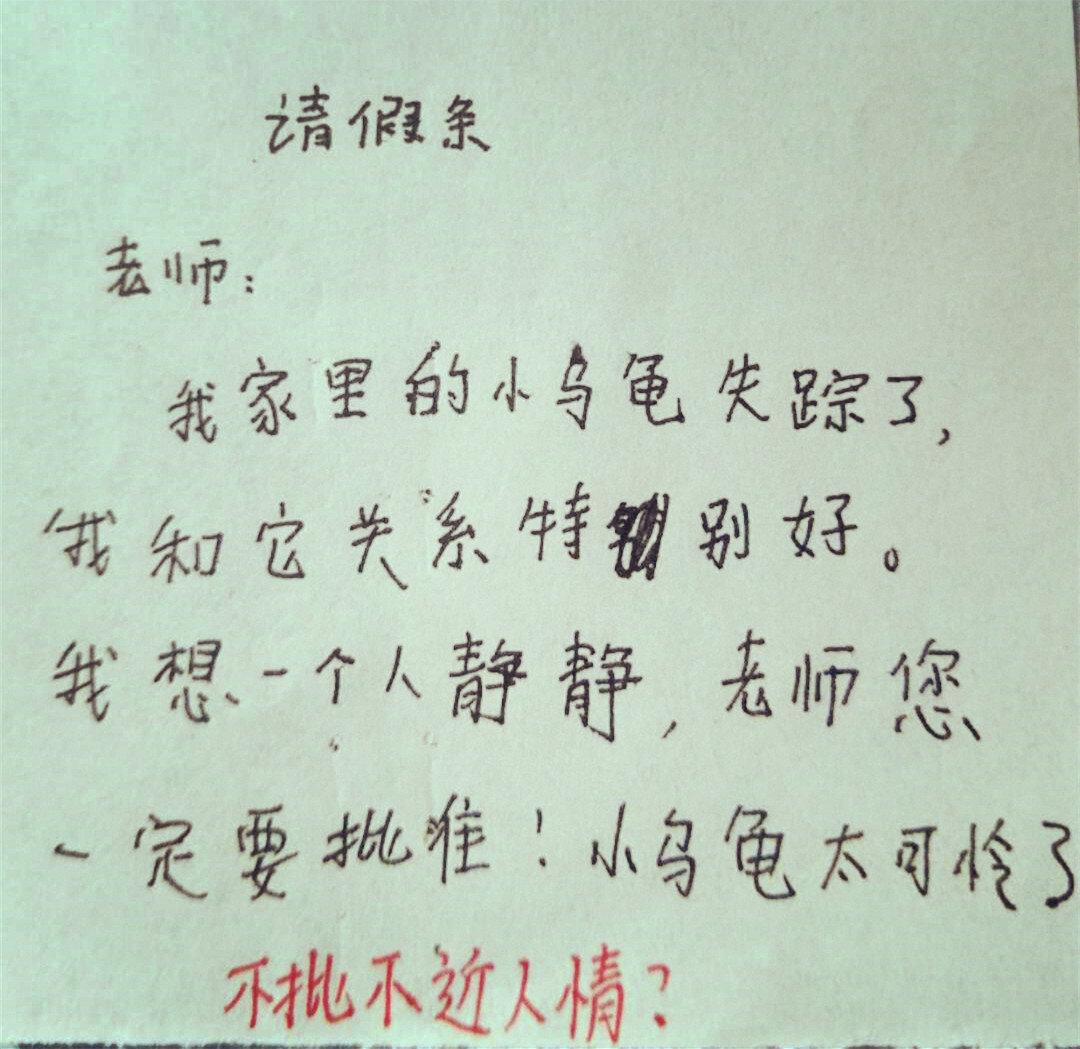 请假条
老师:
我家里的小乌龟失踪了,
我和它关系特别好。
我想一个人静静,老师您
一定要批准!小乌龟太可怜了
不批不近人情?